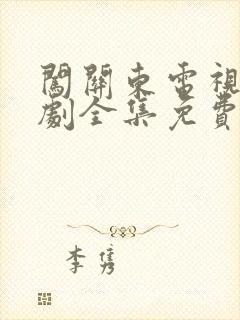 闖關東電視
劇全集免費
李隽